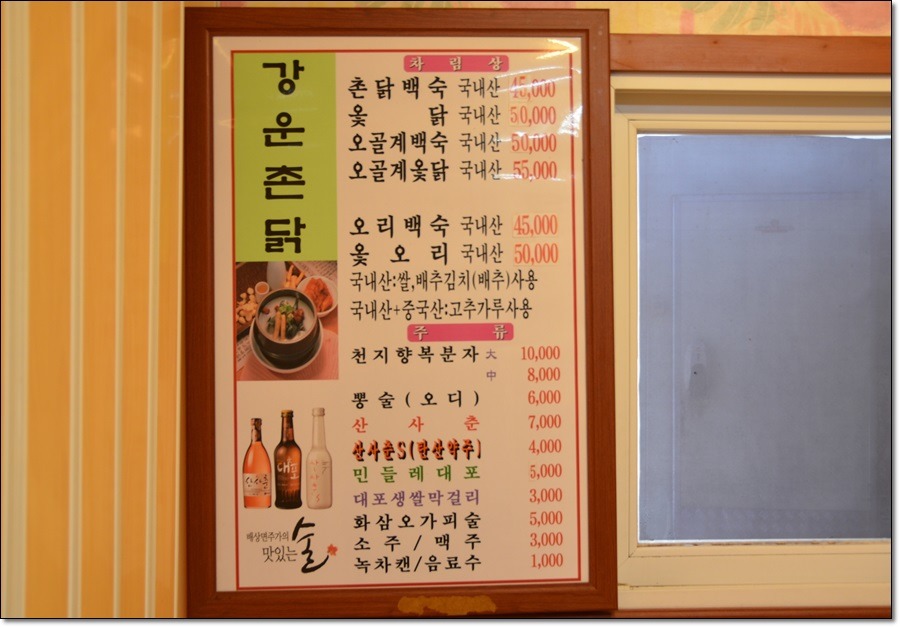 강운촌닭
차림상
촌닭백숙 국내산 45,000
옻닭 국내산 50,000
오골계백숙 국내산 50,000
오골계옻닭 국내산 55,000
오리백숙 국내산 45,000
옻오리 국내산 50,000
국내산:쌀,배추김치(배추)사용
국내산+중국산:고추가루사용
주류
천지향복분자 大 10,000
中 8,000
뽕술(오디) 6,000
산사춘 7,000
산사춘S(탄산약주) 4,000
민들레대포 5,000
대포생쌀막걸리 3,000
화삼오가피술 5,000
소주/맥주 3,000
녹차캔/음료수 1,000
산사춘
대포
배상면주가의
맛있는 술